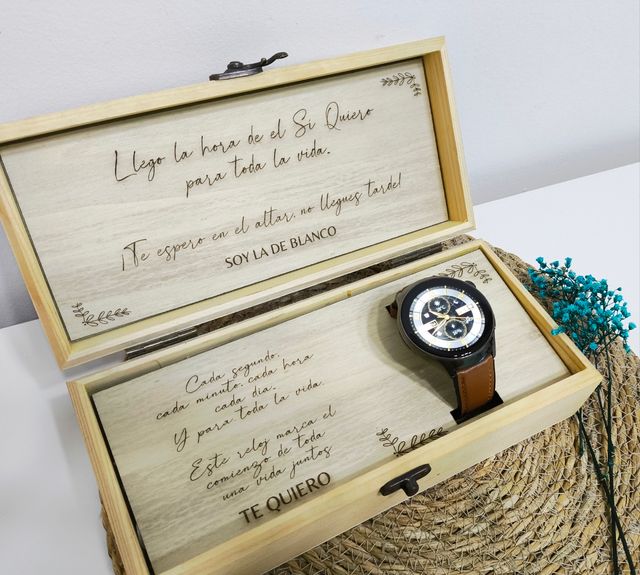 Llego la hora de el Si Quiero
para toda la vida.
¡Te espero en el altar, no llegues tarde!
SOY LA DE BLANCO
Cada segundo,
cada minuto, cada hora
cada dia.
Y para toda la vida.
Este reloj marca el
comienzo de toda
una vida juntos
TE QUIERO